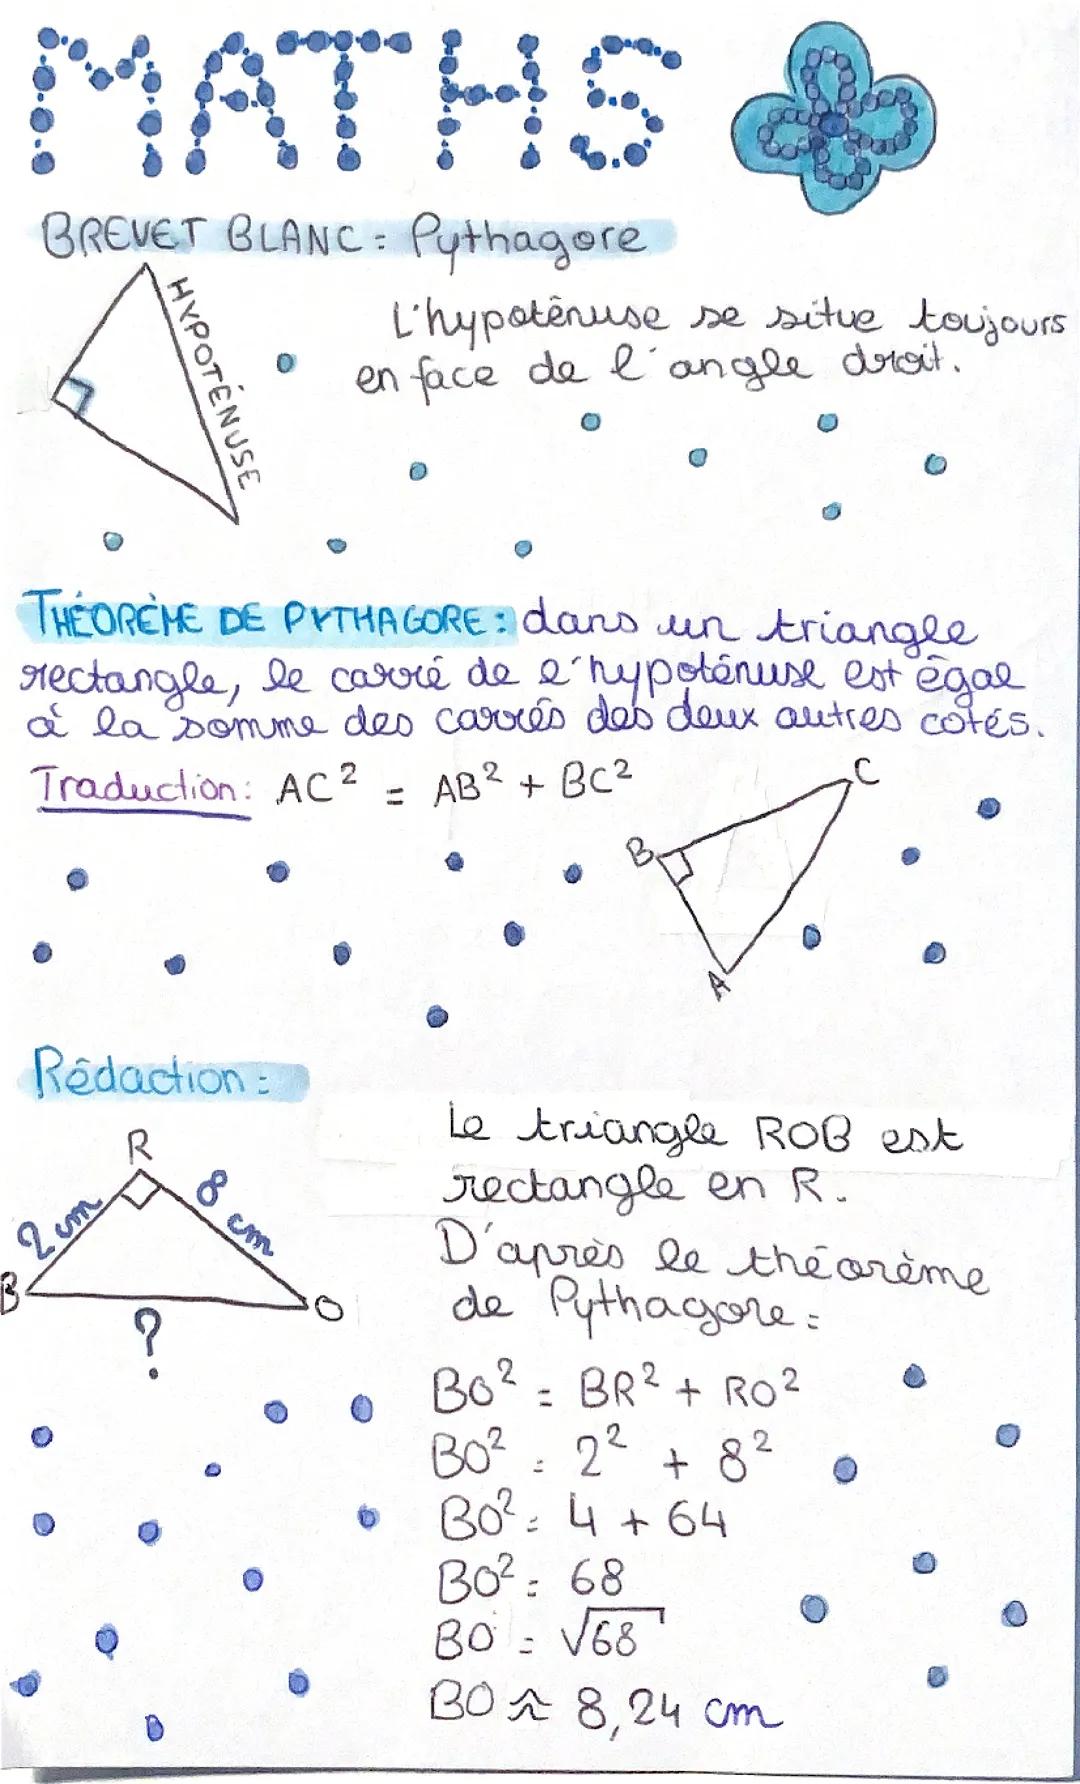 MATHS
BREVET BLANC : Pythagore
HYPOTÉNUSE
L'hypoténuse se situe toujours
en face de l'angle droit.
THÉORÈME DE PYTHAGORE : dans un triangle
rectangle, le carré de l'hypoténuse est égal
à la somme des carrés des deux autres cotés.
Traduction : AC² = AB² + BC²
C
B
A
Rédaction :
R
2 cm
8 cm
B
O
?
Le triangle ROB est
rectangle en R.
D'après le théorème
de Pythagore :
BO² = BR² + RO²
BO² = 2² + 8²
BO² = 4 + 64
BO² = 68
BO = √68
BO ≈ 8,24 cm